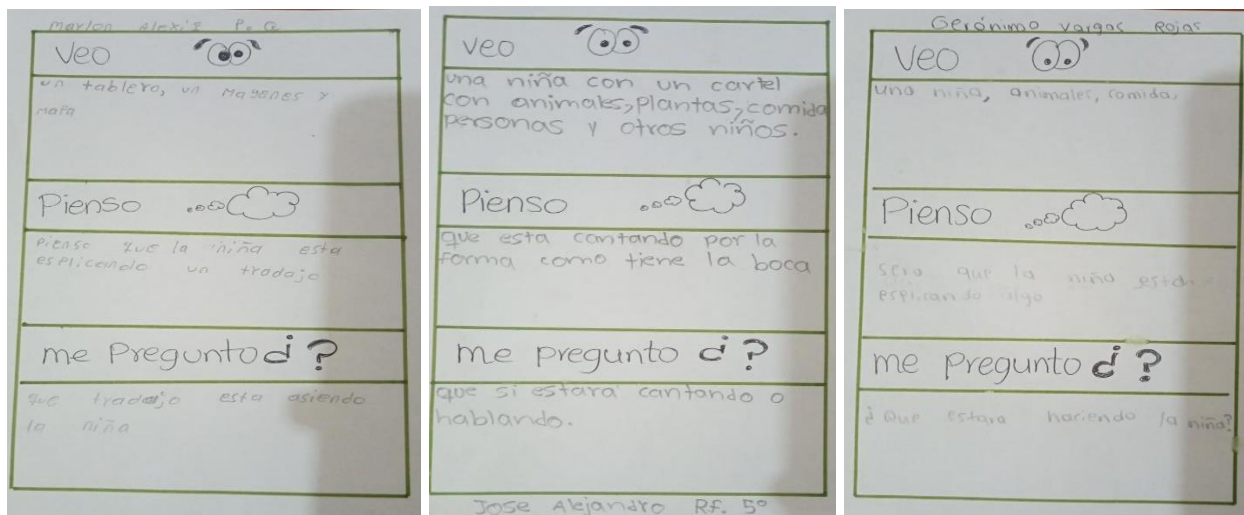 Marlon Alexis P. G.
Veo
un tablero, un Magenes y
mapa
Pienso
Pienso que la niña esta
esplicando un tradajo
me Pregunto ¿?
que tradajo esta asiendo
la niña
veo
una niña con un cartel
con animales, plantas, comida
personas y otros niños.
Pienso
que esta cantando por la
forma como tiene la boca
me pregunto ¿?
que si estará cantando o
hablando.
Jose Alejandro Rf. 5º
Gerónimo vargas Rojas
Veo
una niña, animales, comida,
Pienso
sera que la niña esta
esplicando algo
me pregunto ¿?
¿Que estara haciendo la niña?